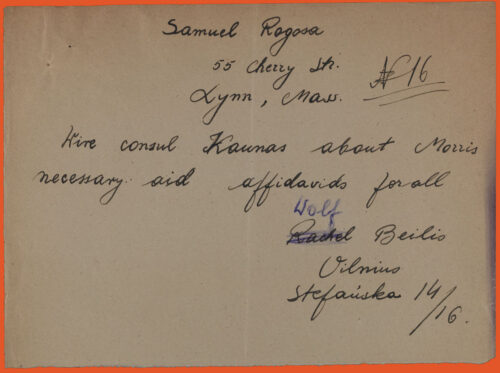 Samuel Rogosa
55 Cherry Str.
Lynn, Mass.
N 16
Wire consul Kaunas about Morris
necessary aid affidavids for all
Wolf
Rachel Beilis
Vilnius
Stefańska 14/16.